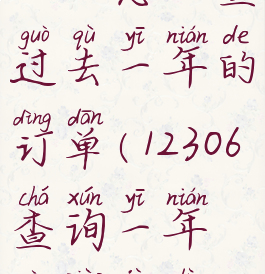 guò qù yī nián de
过去一年的
dìng dān
订单(12306
chá xún yī nián
查询一年